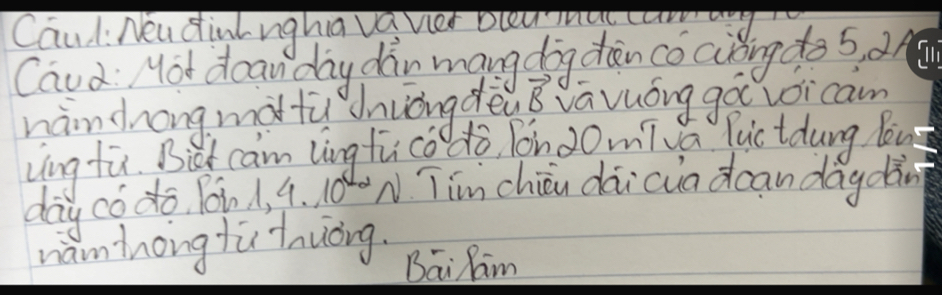 Câu 1: Nêu định nghĩa và viết biểu thức cảm ứng từ
Câu 2: Một đoạn dây dẫn mang dòng điện có cường độ 5,2A
nằm trong một từ trường đều B⃗ và vuông góc với cảm
ứng từ. Biết cảm ứng từ có độ lớn 20 mT và lực t dụng lên
dây có độ lớn 1,4.10⁻² N. Tìm chiều dài của đoạn dây dẫn
nằm trong từ trường.
Bài làm
1/1